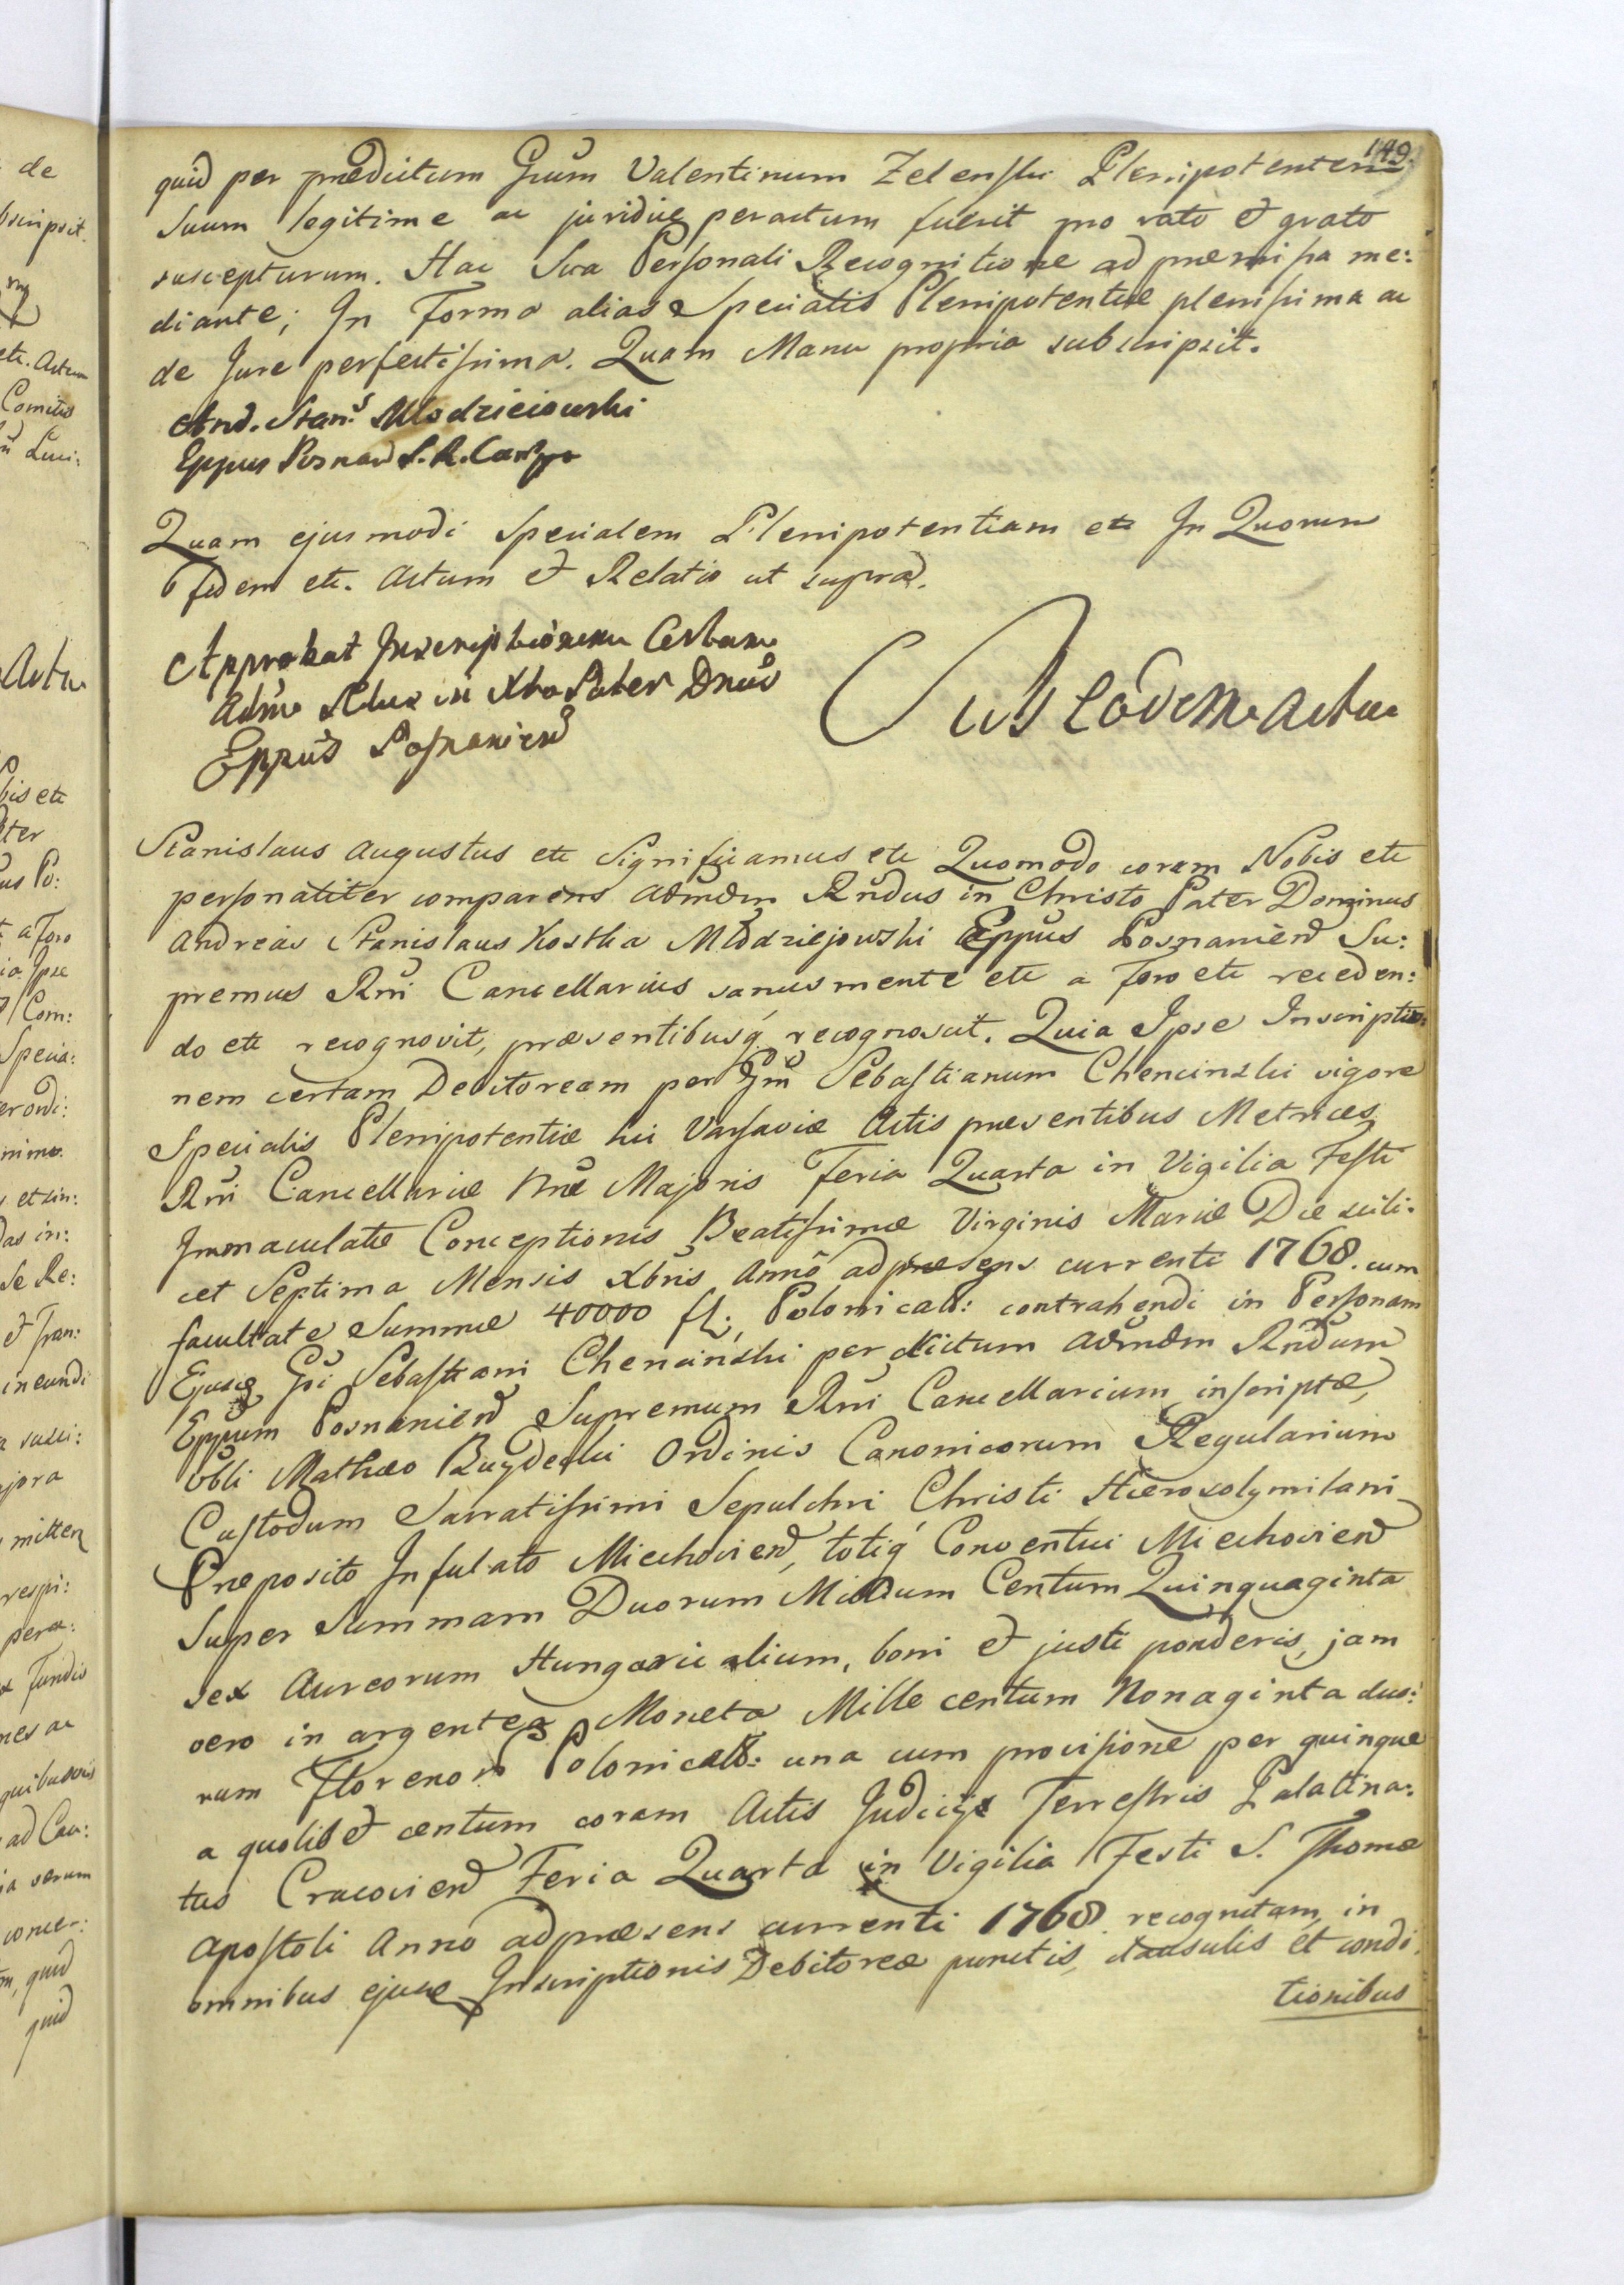 149.
quid per prædictum Gsum Valentinum Zelenski Plenipotentem
suum legitime ac juridice peractum fuerit pro rato et grato
suscepturum. Hac Sua Personali Recognitione ad præmissa me:
diante; In Forma alias Specialis Plenipotentiæ plenissima ac
de Jure perfectissima. Quam Manu propria subscripsit.
And. Stan.s Młodzieiowski
Eppus Posnan S. R. Can
Quam ejusmodi Specialem Plenipotentiam etc In Quorum
fidem etc. Actum et Relatio ut supra.
Approbat Inscriptionem Certam
Adm Rdus in Xto Pater Dnus
Eppus Posnanien
Sub eodem Actu
Stanislaus Augustus etc Significamus etc Quomodo coram Nobis etc
personaliter comparens Admdm Rndus in Christo Pater Dominus
Andreas Stanislaus Kostka Młodziejowski Eppus Posnanien Su:
premus Rni Cancellarius sanus mente etc a Foro etc receden:
do etc recognovit, præsentibusq recognoscit. Quia Ipse Inscriptio:
nem certam Debitoream per Gm Sebastianum Chencinski vigore
Specialis Plenipotentiæ hic Varsaviæ Actis præsentibus Metrices
Rni Cancellariæ Nræ Majoris Feria Quarta in Vigilia Festi
Immaculatæ Conceptionis Beatissimæ Virginis Mariæ Die scili:
cet Septima Mensis Xbris Anno ad præsens currente 1768. cum
facultate Summæ 40000 fl: Polonical: contrahendi in Personam
Ejusde Gsi Sebastiani Chencinski per dictum Admdm Rndum
Eppum Posnanien Supremum Rni Cancellarium inscriptæ,
Vbli Mathæo Buydecki Ordinis Canonicorum Regularium
Custodum Sacratissimi Sepulchri Christi Hierosolymitani
Præposito Infulato Miechovien, totiq Conventui Miechovien
Super Summam Duorum Millium Centum Quinquaginta
sex Aureorum Hungaricalium, boni et justi ponderis, jam
vero in argentea Moneta Mille centum Nonaginta duo:
rum Florenor Polonical: una cum provisione per quinque
a quolibet centum coram Actis Judicij Terrestris Palatina:
tus Cracovien Feria Quarta in Vigilia Festi S. Thomæ
Apostoli Anno ad præsens currenti 1768 recognitam, in
omnibus ejusde Inscriptionis Debitoreæ punctis, clausulis et condi:
tionibus